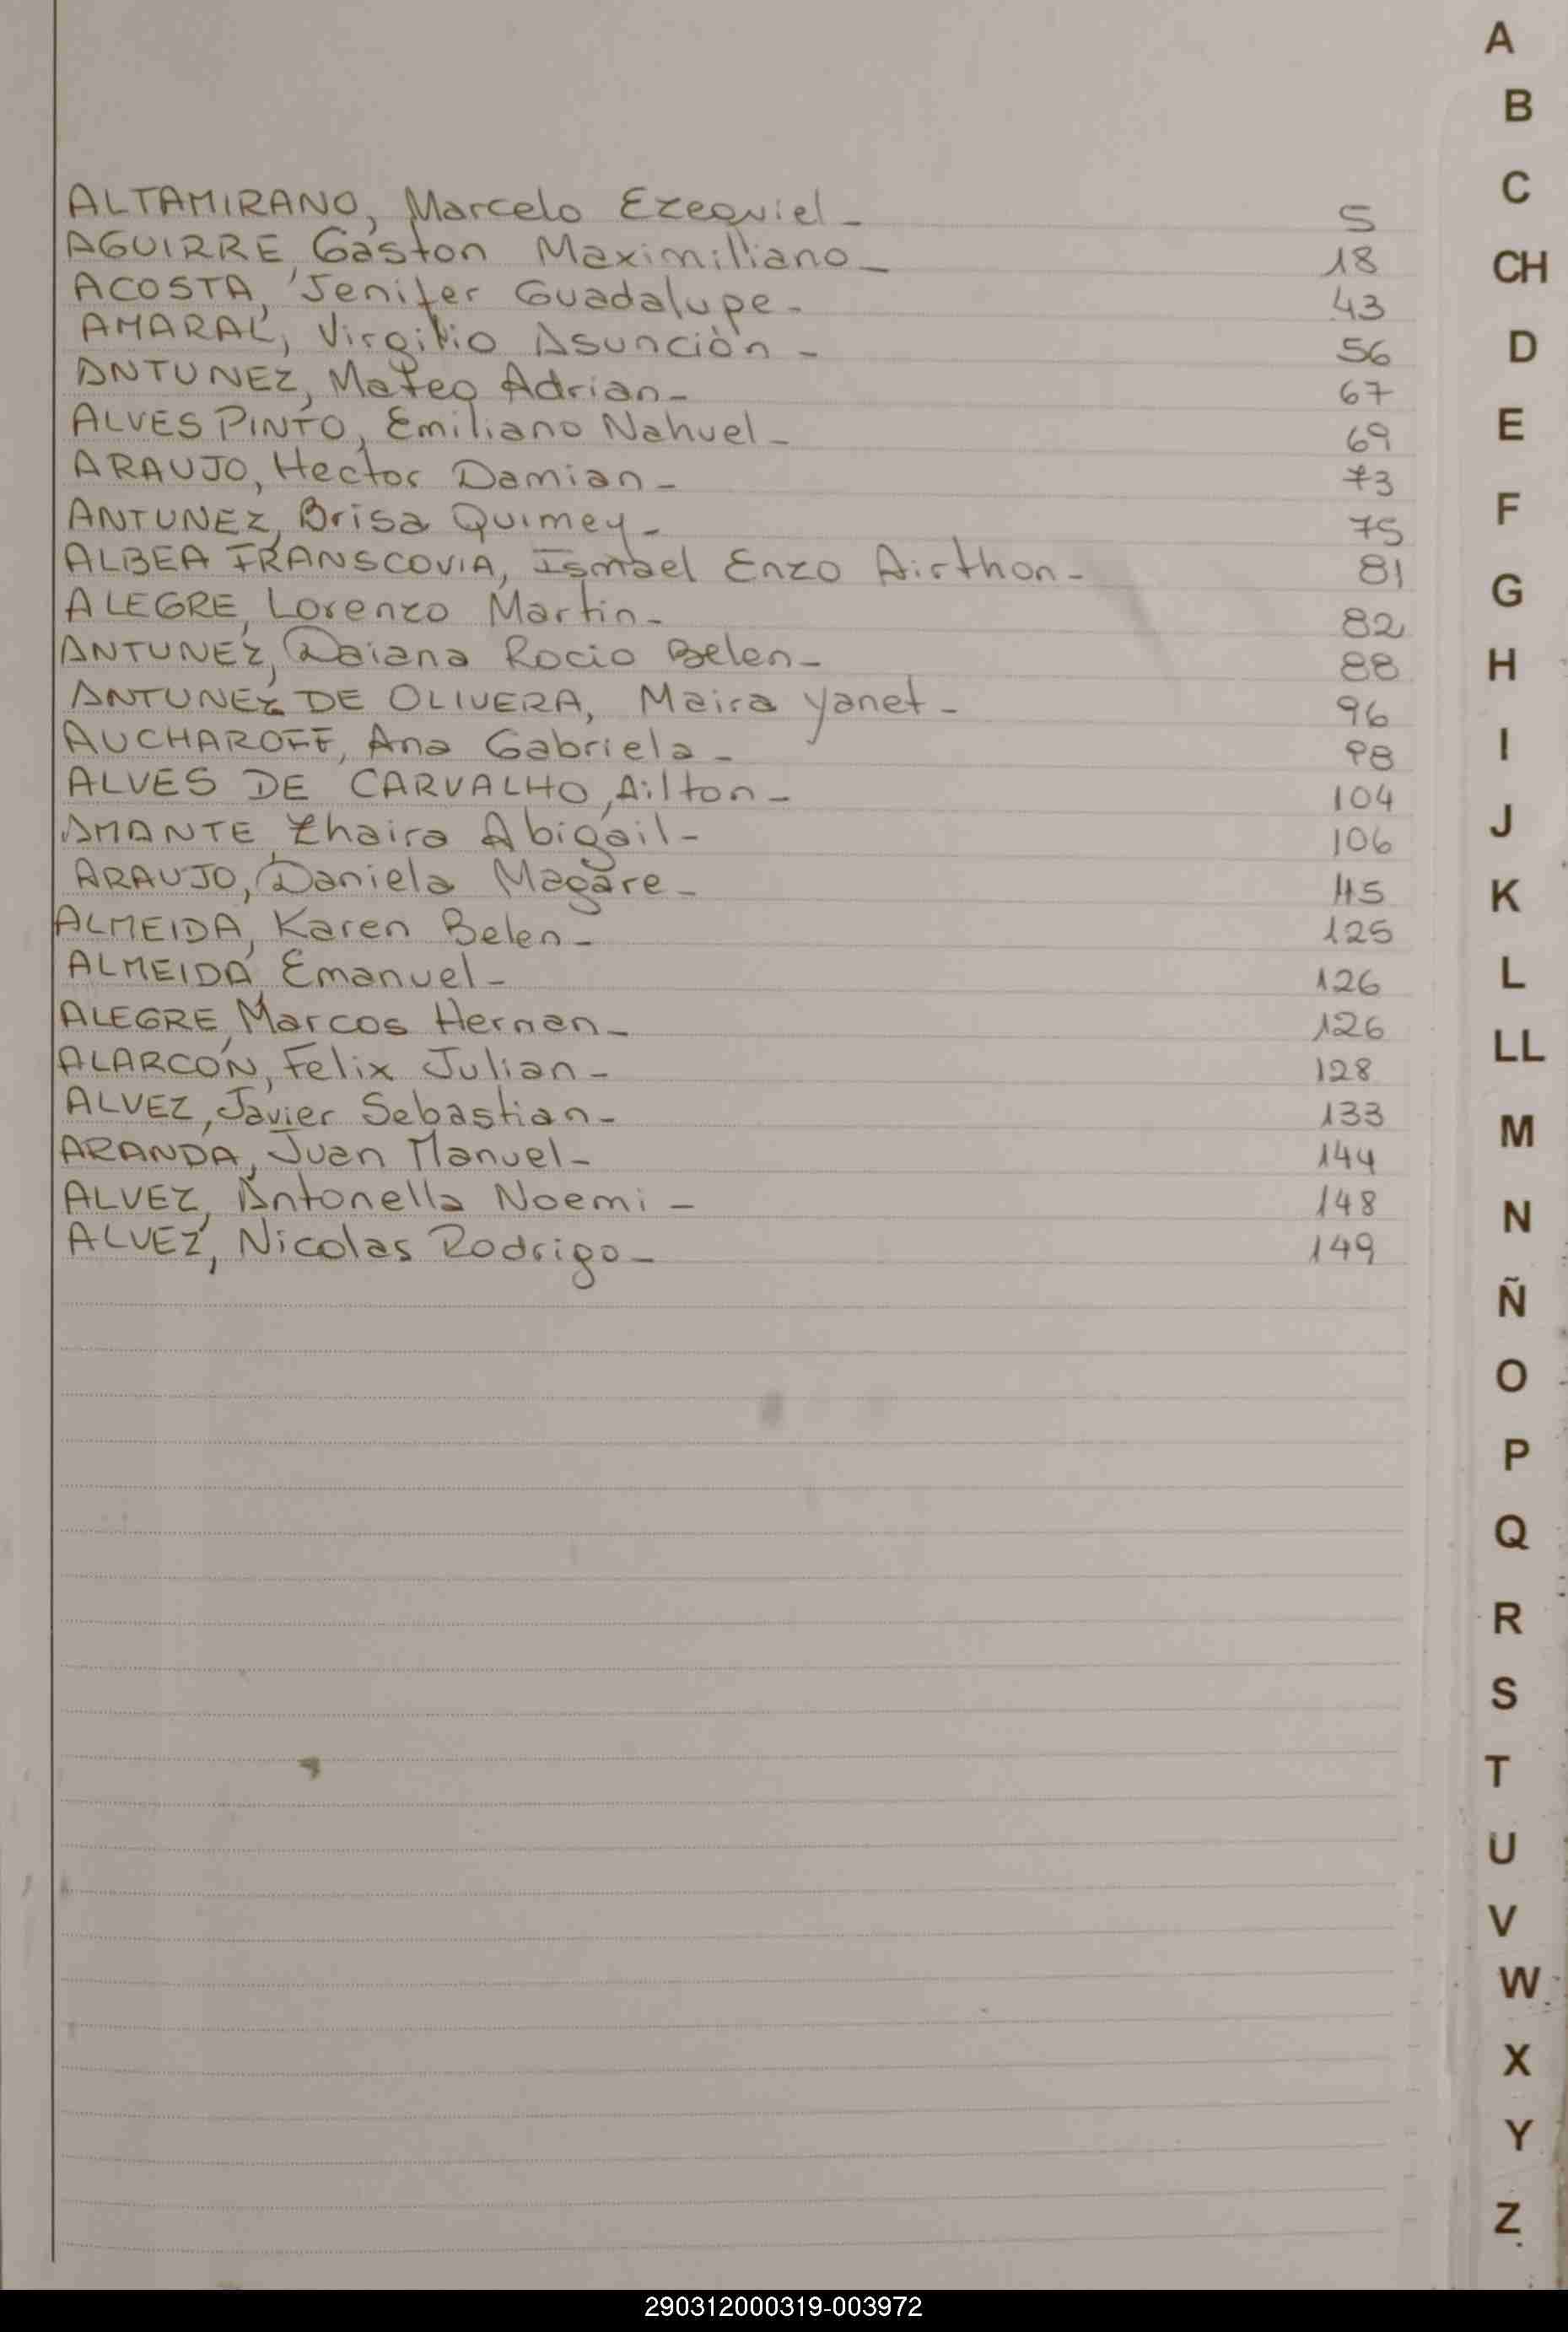 ALTAMIRANO, Marcelo Ezequiel - 5
AGUIRRE, Gaston Maximiliano - 18
ACOSTA, Jenifer Guadalupe - 43
AMARAL, Virgilio Asunción - 56
ANTUNEZ, Mateo Adrian - 67
ALVES PINTO, Emiliano Nahuel - 69
ARAUJO, Hector Damian - 73
ANTUNEZ, Brisa Quimey - 75
ALBEA FRANSCOVIA, Ismael Enzo Airthon - 81
ALEGRE, Lorenzo Martin - 82
ANTUNEZ, Daiana Rocio Belen - 88
ANTUNEZ DE OLIVERA, Maira Yanet - 96
AUCHAROFF, Ana Gabriela - 98
ALVES DE CARVALHO, Ailton - 104
AMANTE, Zhaira Abigail - 106
ARAUJO, Daniela Magare - 115
ALMEIDA, Karen Belen - 125
ALMEIDA, Emanuel - 126
ALEGRE, Marcos Hernan - 126
ALARCON, Felix Julian - 128
ALVEZ, Javier Sebastian - 133
ARANDA, Juan Manuel - 144
ALVEZ, Antonella Noemi - 148
ALVEZ, Nicolas Rodrigo - 149
A
B
C
CH
D
E
F
G
H
I
J
K
L
LL
M
N
Ñ
O
P
Q
R
S
T
U
V
W
X
Y
Z
290312000319-003972